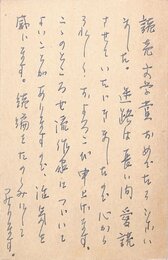 読売文学賞おめでたうござい
ました。迷路は長い間愛読
させていたゞきましたので心から
うれしくおよろこび申上げます。
このところ女流作家について
よいことがありますので、活気を
感じます。続編をたのしみにして